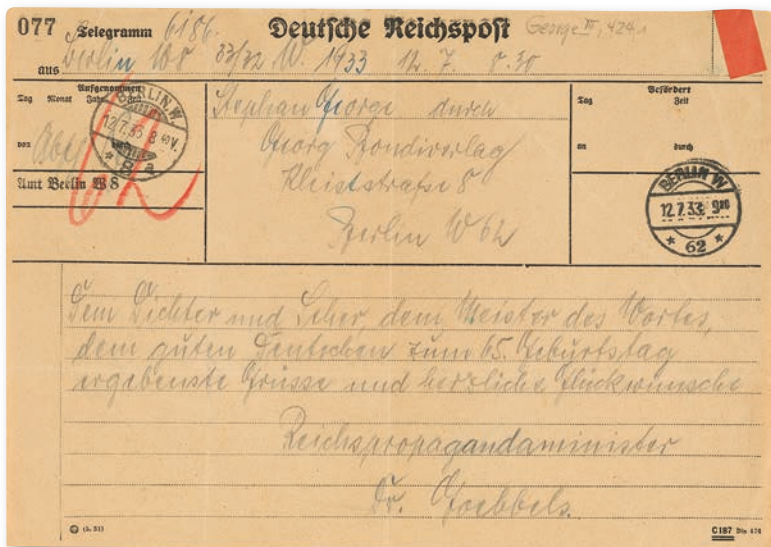 077 Telegramm 6186. Deutsche Reichspost George III, 424,1
aus Berlin W8 33/32 W. 1933 12. 7. 8.30
Aufgenommen
Tag Monat Jahr Zeit
von
BERLIN W.
12.7.33. 8 40 V.
* 8 a
Amt Berlin W 8
Stephan George durch
Georg Bondiverlag
Kleiststraße 8
Berlin W 62
Befördert
Tag Zeit
an durch
BERLIN W
12.7.33. 9 20
* 62 *
Dem Dichter und Seher, dem Meister des Wortes,
dem guten Deutschen zum 65. Geburtstag
ergebenste Grüsse und herzliche Glückwünsche
Reichspropagandaminister
Dr. Goebbels.
C187 Din 476